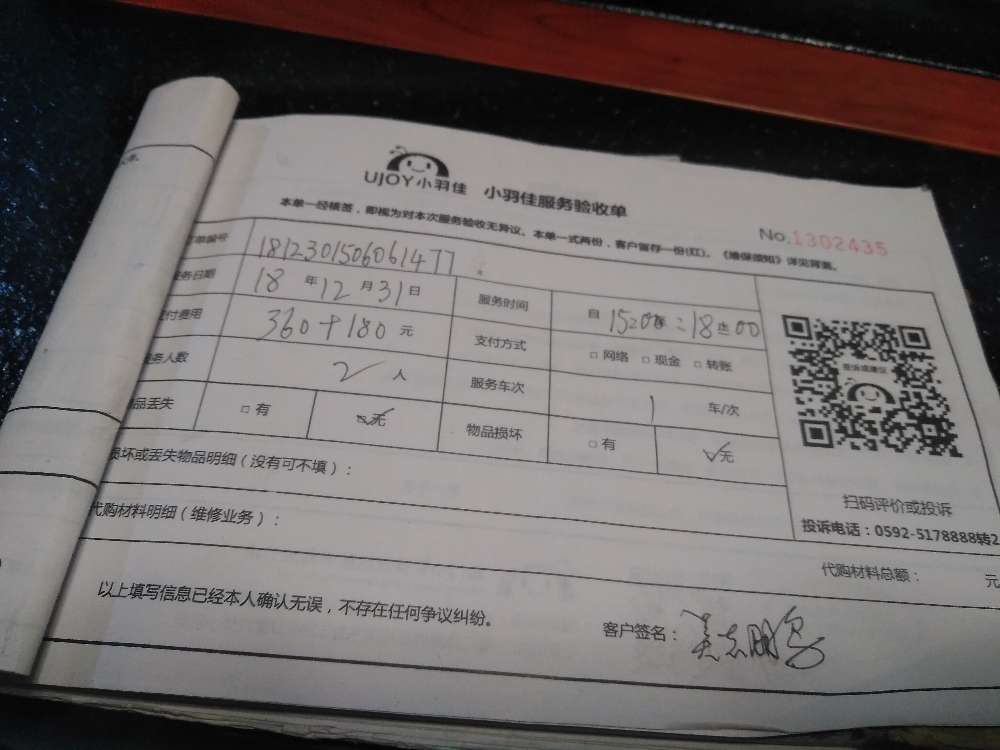 UJOY小羽佳 小羽佳服务验收单
No.1302435
本单一经核签，即视为对本次服务验收无异议。本单一式两份，客户留存一份(红)。《维保须知》详见背面。
单编号 1812301506061477
务日期 18年12月31日 服务时间 自 1520 18 00
付费用 360+180元 支付方式 □网络 □现金 □转账
务人数 2人 服务车次 1 车/次
品丢失 □有 ☑无 物品损坏 □有 ☑无
损坏或丢失物品明细（没有可不填）：
代购材料明细（维修业务）：
扫码评价或投诉
投诉电话：0592-5178888转2
代购材料总额： 元
以上填写信息已经本人确认无误，不存在任何争议纠纷。
客户签名：